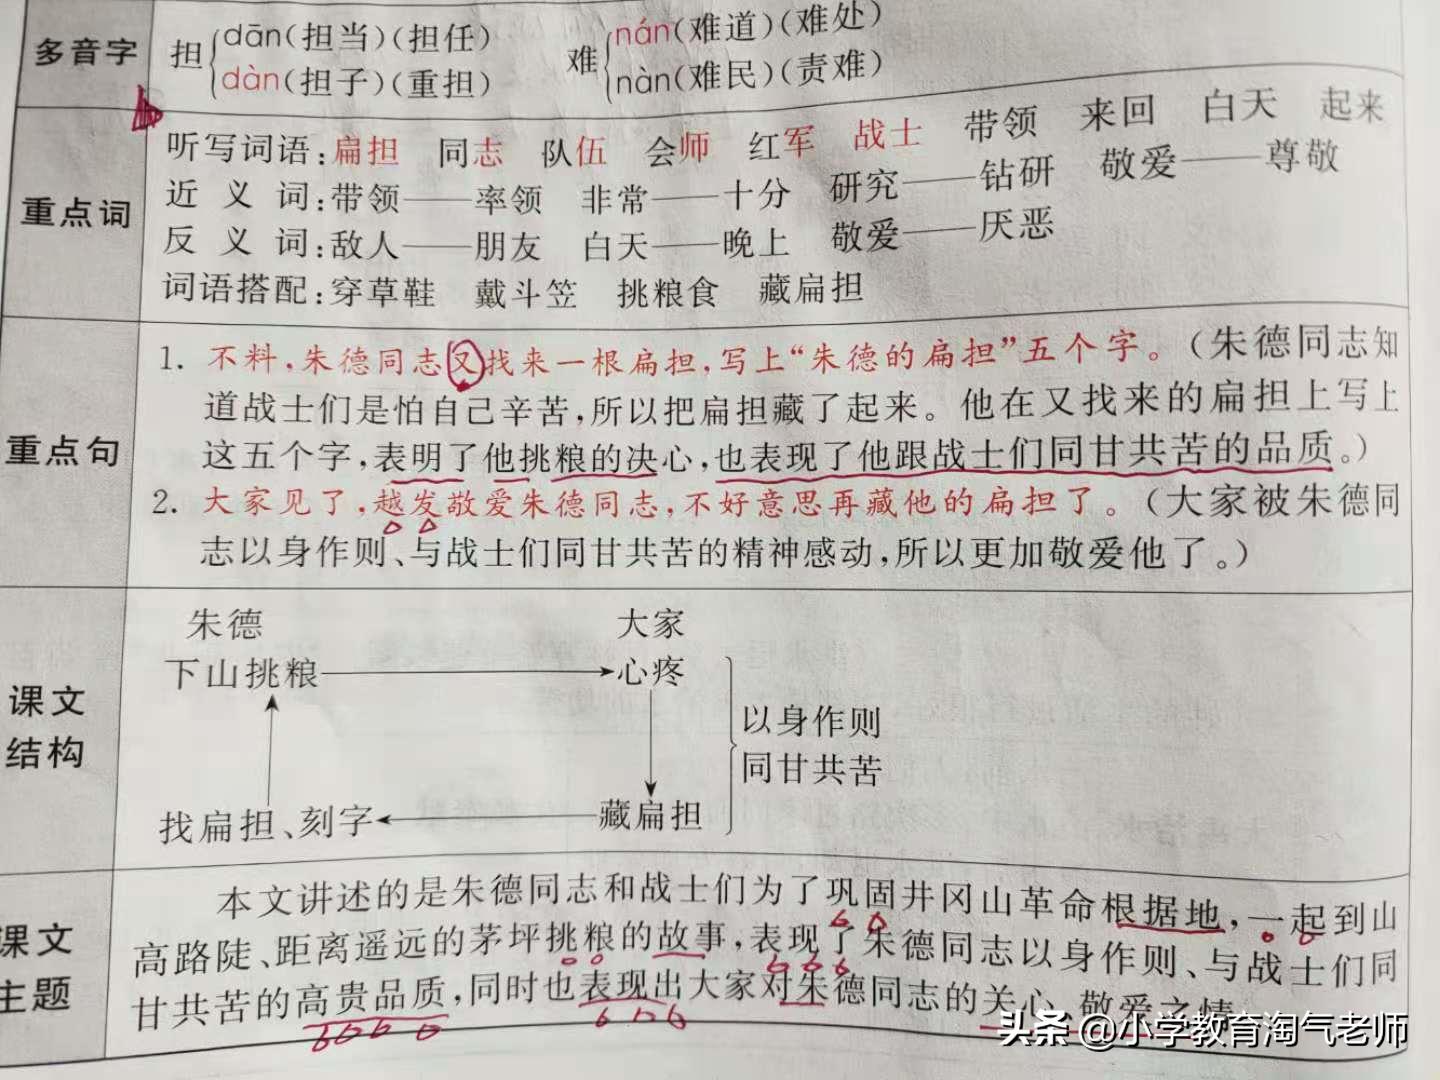 多音字
担 dān(担当)(担任)
dàn(担子)(重担)
难 nán(难道)(难处)
nàn(难民)(责难)
重点词
听写词语:扁担 同志 队伍 会师 红军 战士 带领 来回 白天 起来
近义词:带领——率领 非常——十分 研究——钻研 敬爱——尊敬
反义词:敌人——朋友 白天——晚上 敬爱——厌恶
词语搭配:穿草鞋 戴斗笠 挑粮食 藏扁担
重点句
1. 不料,朱德同志又找来一根扁担,写上“朱德的扁担”五个字。(朱德同志知
道战士们是怕自己辛苦,所以把扁担藏了起来。他在又找来的扁担上写上
这五个字,表明了他挑粮的决心,也表现了他跟战士们同甘共苦的品质。)
2. 大家见了,越发敬爱朱德同志,不好意思再藏他的扁担了。(大家被朱德同
志以身作则、与战士们同甘共苦的精神感动,所以更加敬爱他了。)
课文
结构
朱德 大家
下山挑粮 心疼
以身作则
同甘共苦
找扁担、刻字 藏扁担
课文
主题
本文讲述的是朱德同志和战士们为了巩固井冈山革命根据地,一起到山
高路陡、距离遥远的茅坪挑粮的故事,表现了朱德同志以身作则、与战士们同
甘共苦的高贵品质,同时也表现出大家对朱德同志的关心、敬爱之情
头条 @小学教育淘气老师